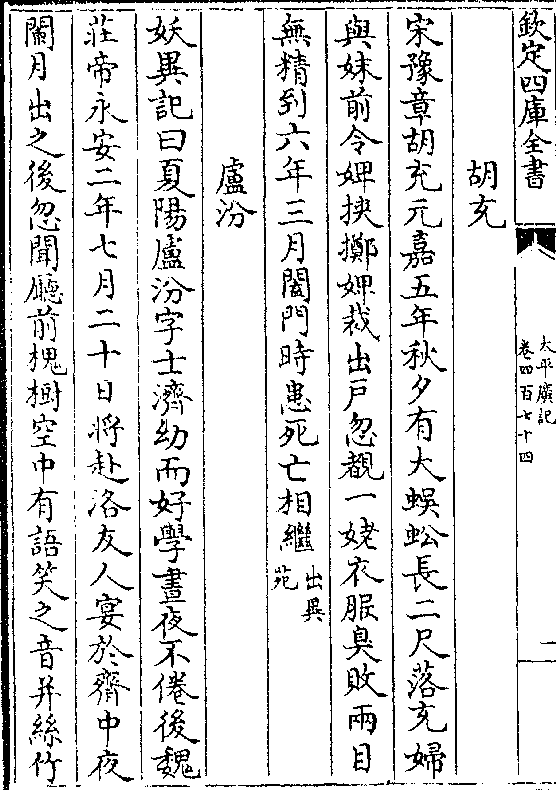 欽定四庫全書
太平廣記
卷四百七十四
一
胡充
宋豫章胡充元嘉五年秋夕有大蜈蚣長二尺落充婦
與妹前令婢挾擲婢裁出戶忽覩一姥衣服臭敗兩目
無精到六年三月闔門時患死亡相繼
出異
苑
盧汾
妖異記曰夏陽盧汾字士濟幼而好學晝夜不倦後魏
莊帝永安二年七月二十日將赴洛友人宴於齋中夜
闌月出之後忽聞廳前槐樹空中有語笑之音并絲竹